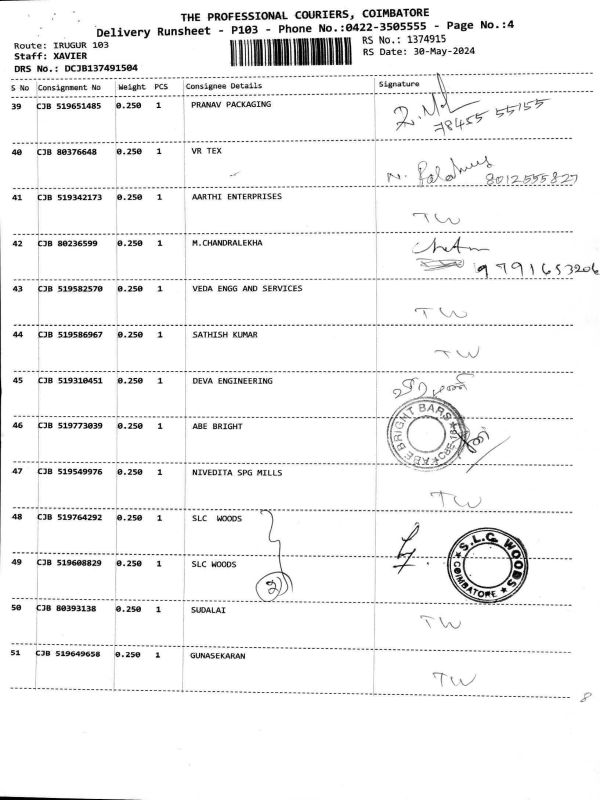 THE PROFESSIONAL COURIERS, COIMBATORE
Delivery Runsheet - P103 - Phone No.:0422-3505555 - Page No.:4
Route: IRUGUR 103
RS No.: 1374915
Staff: XAVIER
RS Date: 30-May-2024
DRS No.: DCJB137491504
S No Consignment No Weight PCS Consignee Details Signature
39 CJB 519651485 0.250 1 PRANAV PACKAGING
78455 55155
40 CJB 80376648 0.250 1 VR TEX
8012555827
41 CJB 519342173 0.250 1 AARTHI ENTERPRISES TW
42 CJB 80236599 0.250 1 M.CHANDRALEKHA
9791653206
43 CJB 519582570 0.250 1 VEDA ENGG AND SERVICES TW
44 CJB 519586967 0.250 1 SATHISH KUMAR TW
45 CJB 519310451 0.250 1 DEVA ENGINEERING
46 CJB 519773039 0.250 1 ABE BRIGHT ABE BRIGHT BARS
47 CJB 519549976 0.250 1 NIVEDITA SPG MILLS TW
48 CJB 519764292 0.250 1 SLC WOODS
49 CJB 519608829 0.250 1 SLC WOODS 2 S.L.C WOODS COIMBATORE
50 CJB 80393138 0.250 1 SUDALAI TW
51 CJB 519649658 0.250 1 GUNASEKARAN TW
8